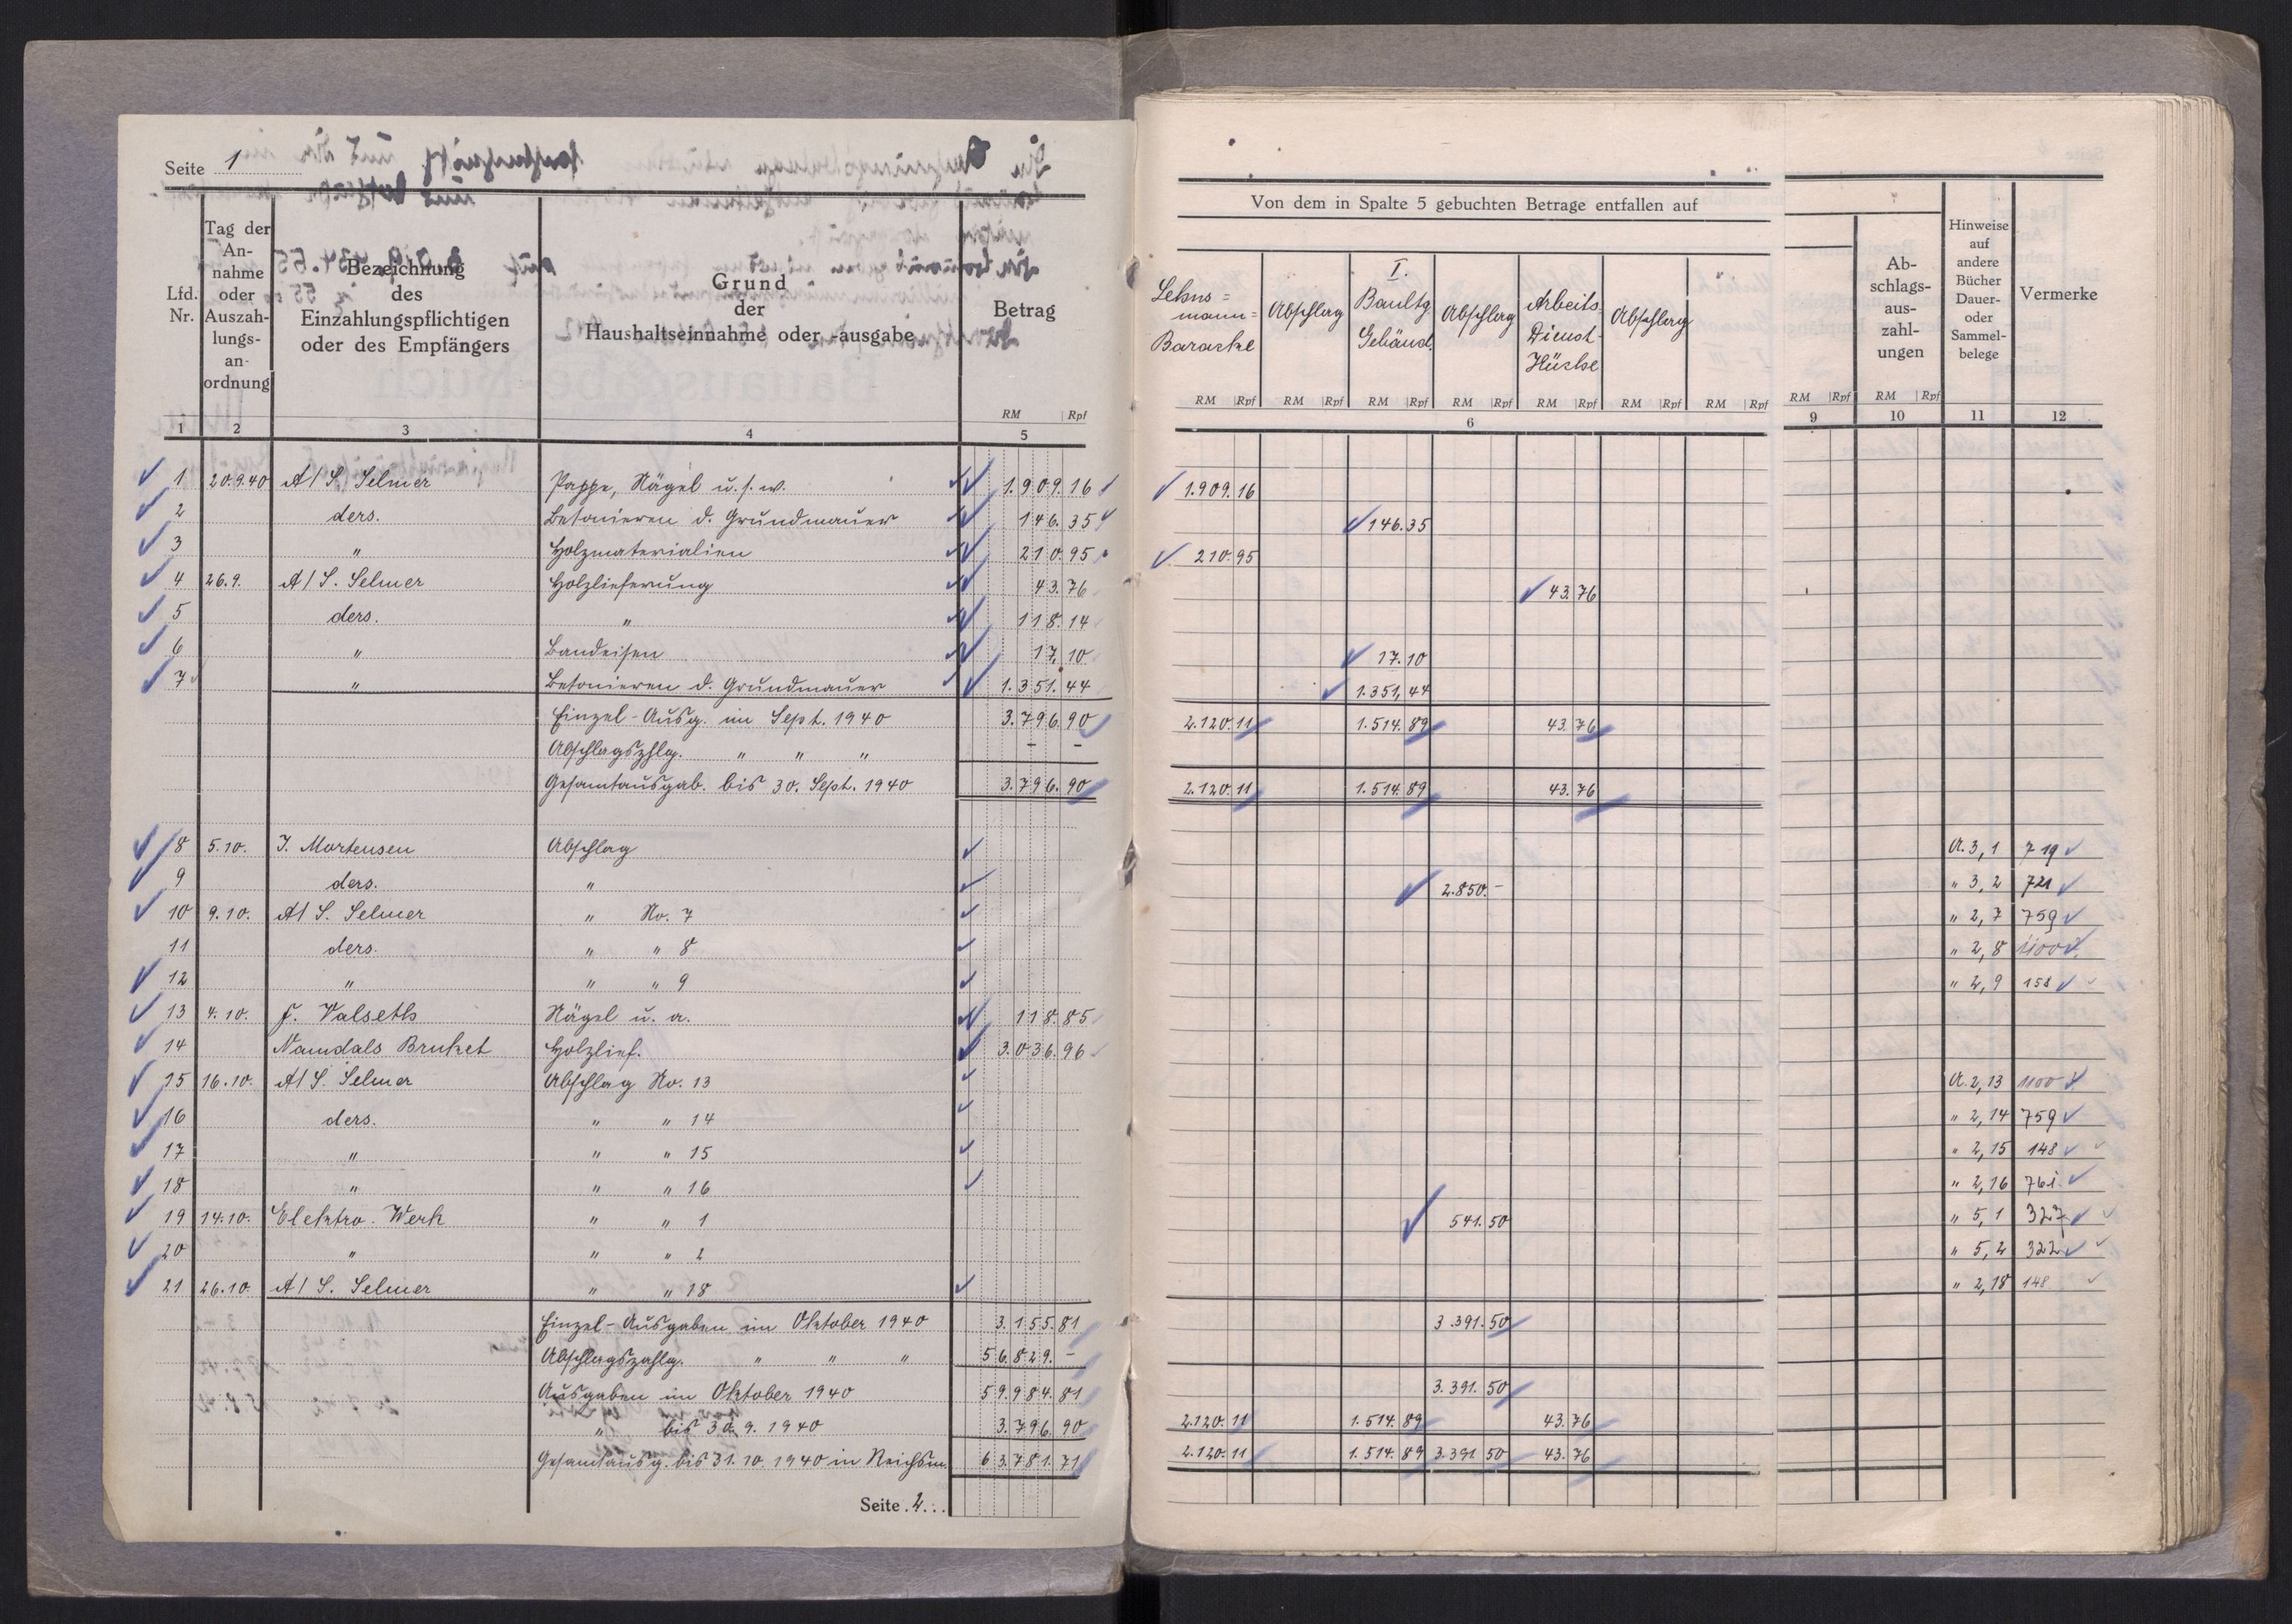 Seite 1
Lfd. Nr.
Tag der An- nahme oder Auszah- lungs- an- ordnung
Bezeichnung des Einzahlungspflichtigen oder des Empfängers
Grund der Haushaltseinnahme oder -ausgabe
Betrag
RM Rpf
1 2 3 4 5
1 20.9.40 A/S. Selmer Pappe, Nägel u.s.w. 1.909.16
2 ders. Betonieren d. Grundmauer 146.35
3 " Holzmaterialien 210.95
4 26.9. A/S. Selmer Holzlieferung 43.76
5 ders. " 118.14
6 " Bandeisen 17.10
7 " Betonieren d. Grundmauer 1.351.44
Einzel-Ausg. im Sept. 1940 3.796.90
Abschlagszhlg. " " " - -
Gesamtausgab. bis 30. Sept. 1940 3.796.90
8 5.10. J. Mortensen Abschlag
9 ders. "
10 9.10. A/S. Selmer " No. 7
11 ders. " " 8
12 " " " 9
13 4.10. F. Valseth Nägel u. a. 118.85
14 Namdals Bruket Holzlief. 3.036.96
15 16.10. A/S. Selmer Abschlag No. 13
16 ders. " " 14
17 " " " 15
18 " " " 16
19 14.10. Elektro. Werk " " 1
20 " " " 2
21 26.10. A/S. Selmer " " 18
Einzel-Ausgaben im Oktober 1940 3.155.81
Abschlagszahlg. " " " 56.829.-
Ausgaben im Oktober 1940 59.984.81
" bis 30.9.1940 3.796.90
Gesamtausg. bis 31.10.1940 in Reichsm. 63.781.71
Seite 2...
Von dem in Spalte 5 gebuchten Betrage entfallen auf
Lehns=mann=Baracke
Abschlag
I. Baultg. Gebäud.
Abschlag
Arbeits-Dienst-Hütte
Abschlag
RM Rpf RM Rpf RM Rpf RM Rpf RM Rpf RM Rpf RM Rpf
6
1.909.16
146.35
210.95
43.76
17.10
1.351,44
2.120.11 1.514.89 43.76
2.120.11 1.514.89 43.76
2.850.-
541.50
3.391.50
3.391.50
2.120.11 1.514.89 43.76
2.120.11 1.514.89 3.391.50 43.76
Ab- schlags- aus- zahl- ungen
Hinweise auf andere Bücher Dauer- oder Sammel- belege
Vermerke
RM Rpf RM Rpf
9 10 11 12
A. 3,1 719
" 3,2 721
" 2,7 759
" 2,8 1100
" 2,9 158
A. 2,13 1100
" 2,14 759
" 2,15 148
" 2,16 761
" 5,1 327
" 5,2 322
" 2,18 148